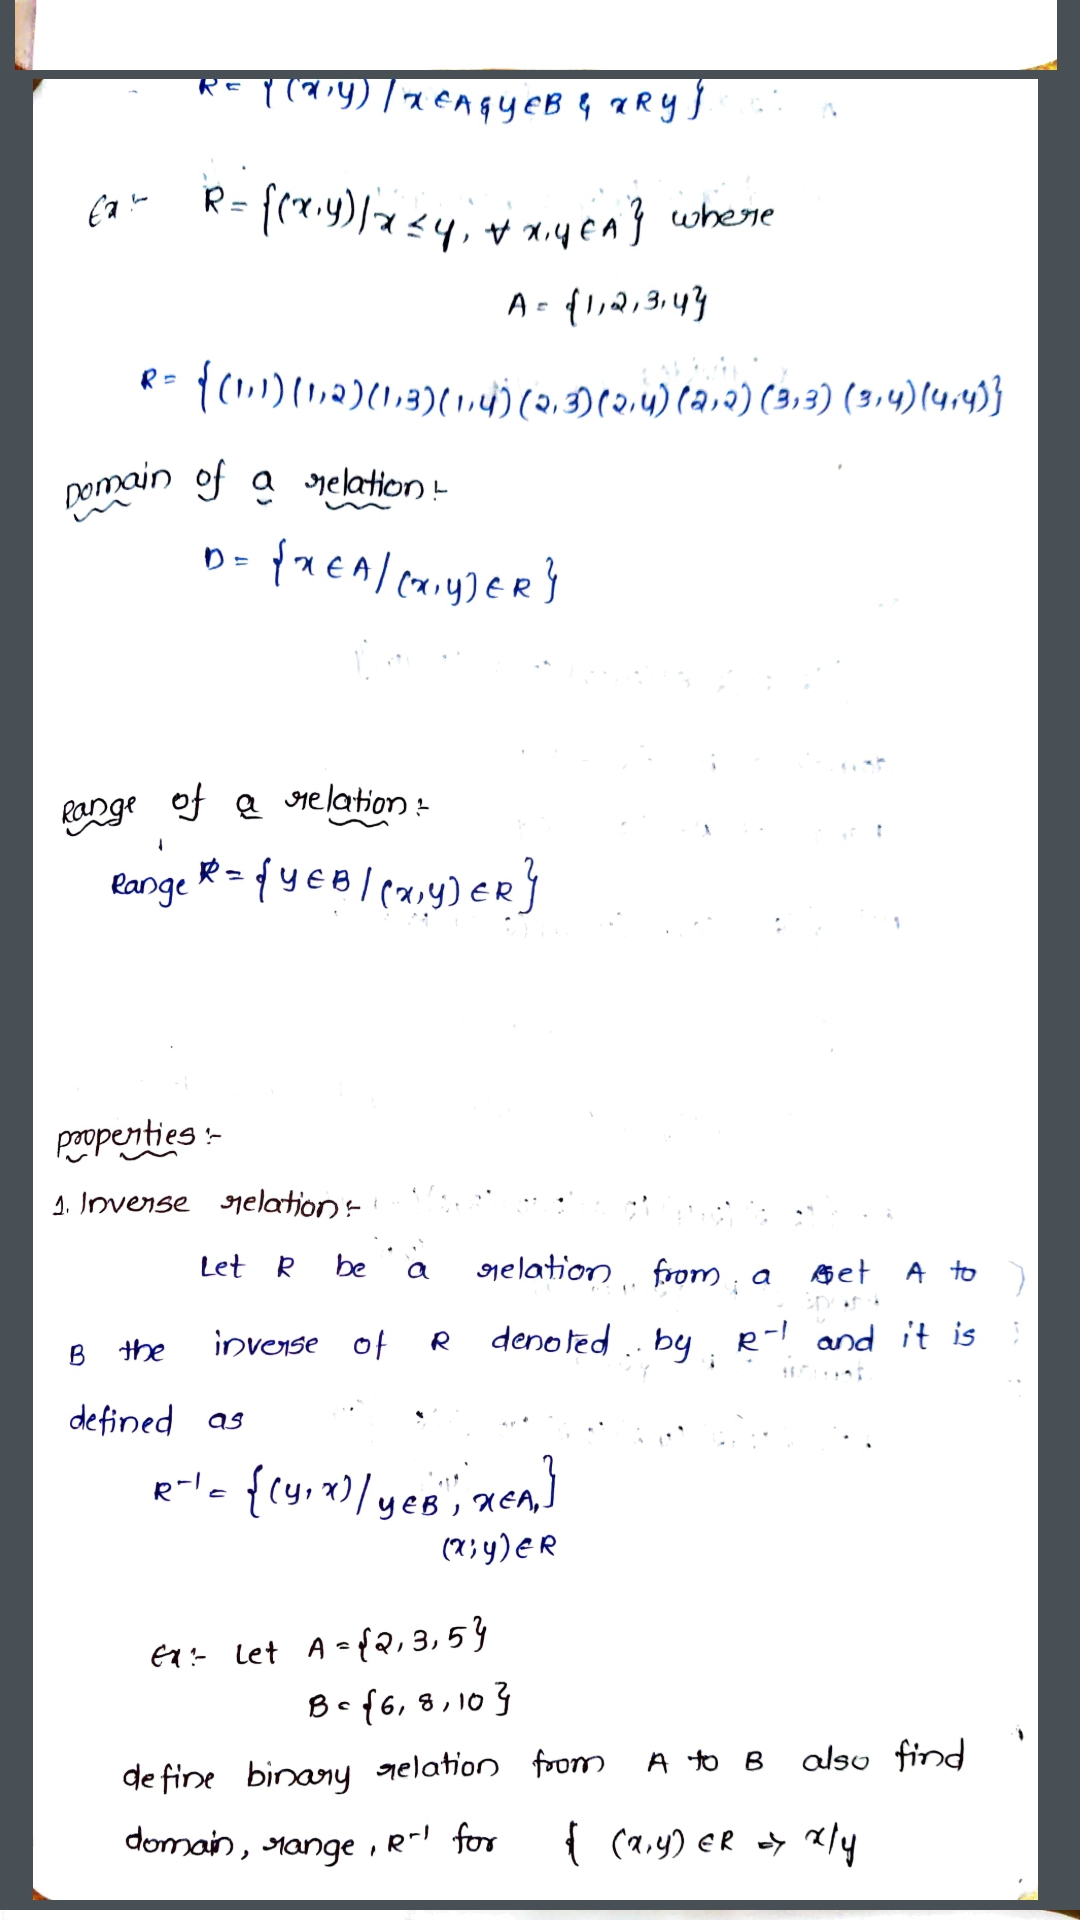 R = {(x,y) / x ∈ A & y ∈ B & x R y}
Ex:- R = {(x,y) / x ≤ y, ∀ x,y ∈ A} where
A = {1,2,3,4}
R = {(1,1)(1,2)(1,3)(1,4)(2,3)(2,4)(2,2)(3,3)(3,4)(4,4)}
Domain of a relation:-
D = {x ∈ A / (x,y) ∈ R}
Range of a relation:-
Range R = {y ∈ B / (x,y) ∈ R}
properties:-
1. Inverse relation:-
Let R be a relation from a set A to
B the inverse of R denoted by R⁻¹ and it is
defined as
R⁻¹ = {(y,x) / y ∈ B, x ∈ A,}
(x,y) ∈ R
Ex:- Let A = {2,3,5}
B = {6,8,10}
define binary relation from A to B also find
domain, range, R⁻¹ for { (x,y) ∈ R ⇒ x/y